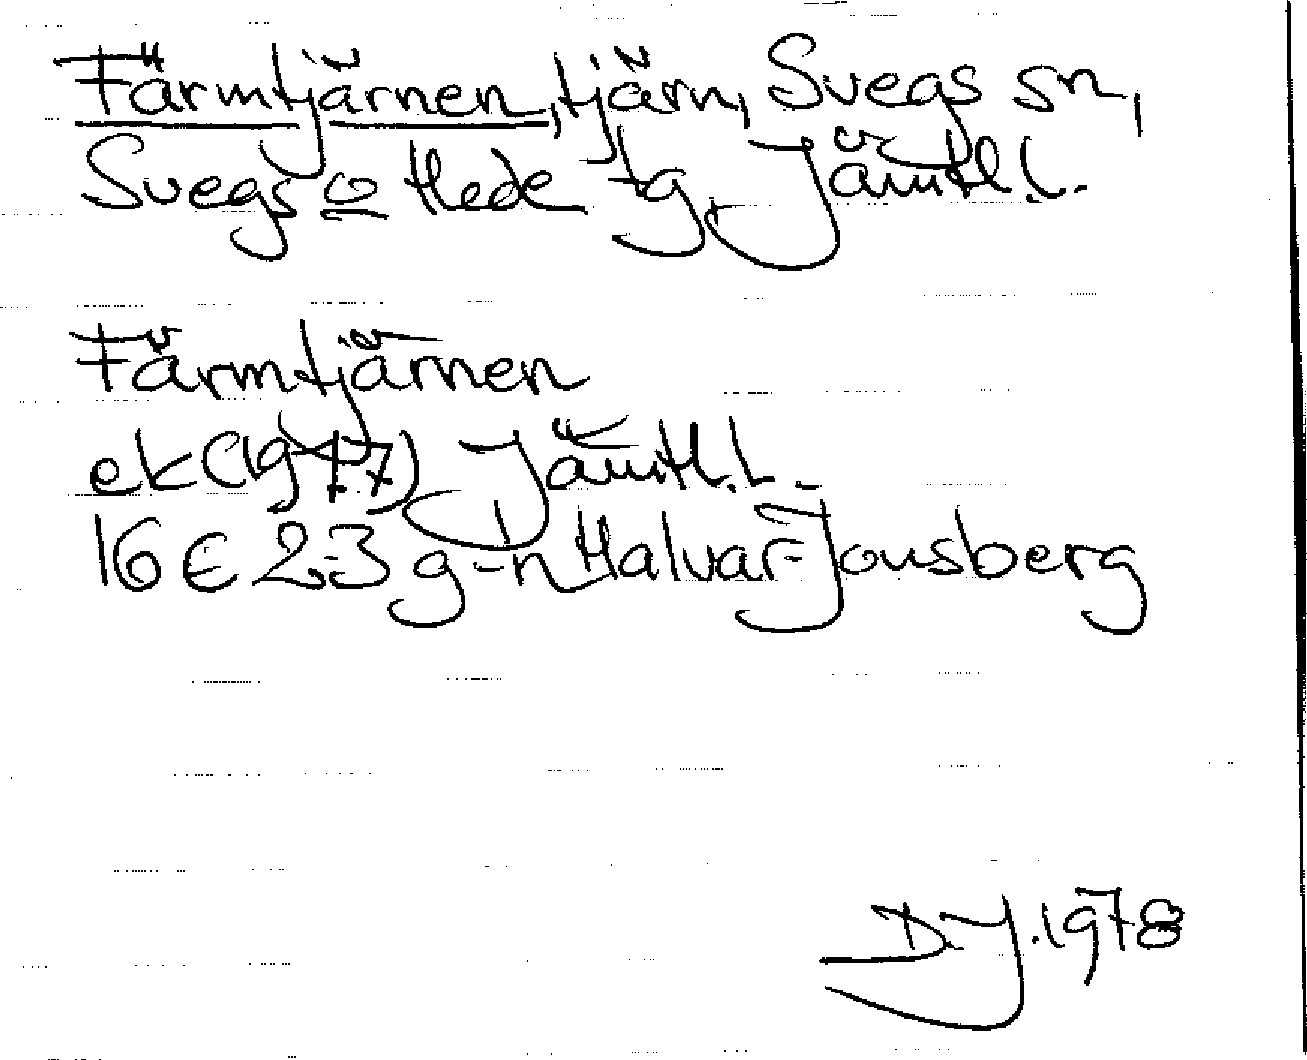 Färmtjärnen, tjärn, Svegs sn,
Svegs o Hede tg, Jämtl. l.
Färmtjärnen
ek (1977) Jämtl. l.
16 E 2-3 g-h Halvar-Jonsberg
D. J. 1978